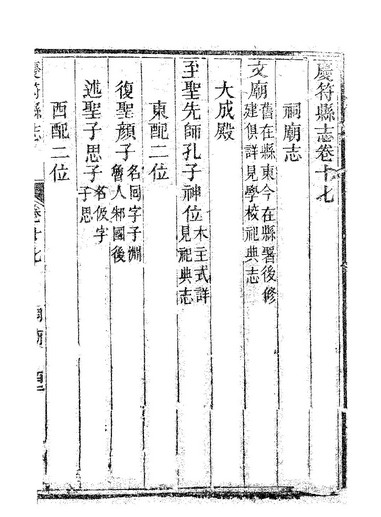 慶符縣志卷十七
祠廟志
文廟舊在縣東今在縣署後修
建俱詳見學校祀典志
大成殿
至聖先師孔子神位木主式詳
見祀典志
東配二位
復聖顏子名回字子淵
魯人邾國後
述聖子思子名伋字
子思
西配二位
慶符縣志
卷十七
祠廟